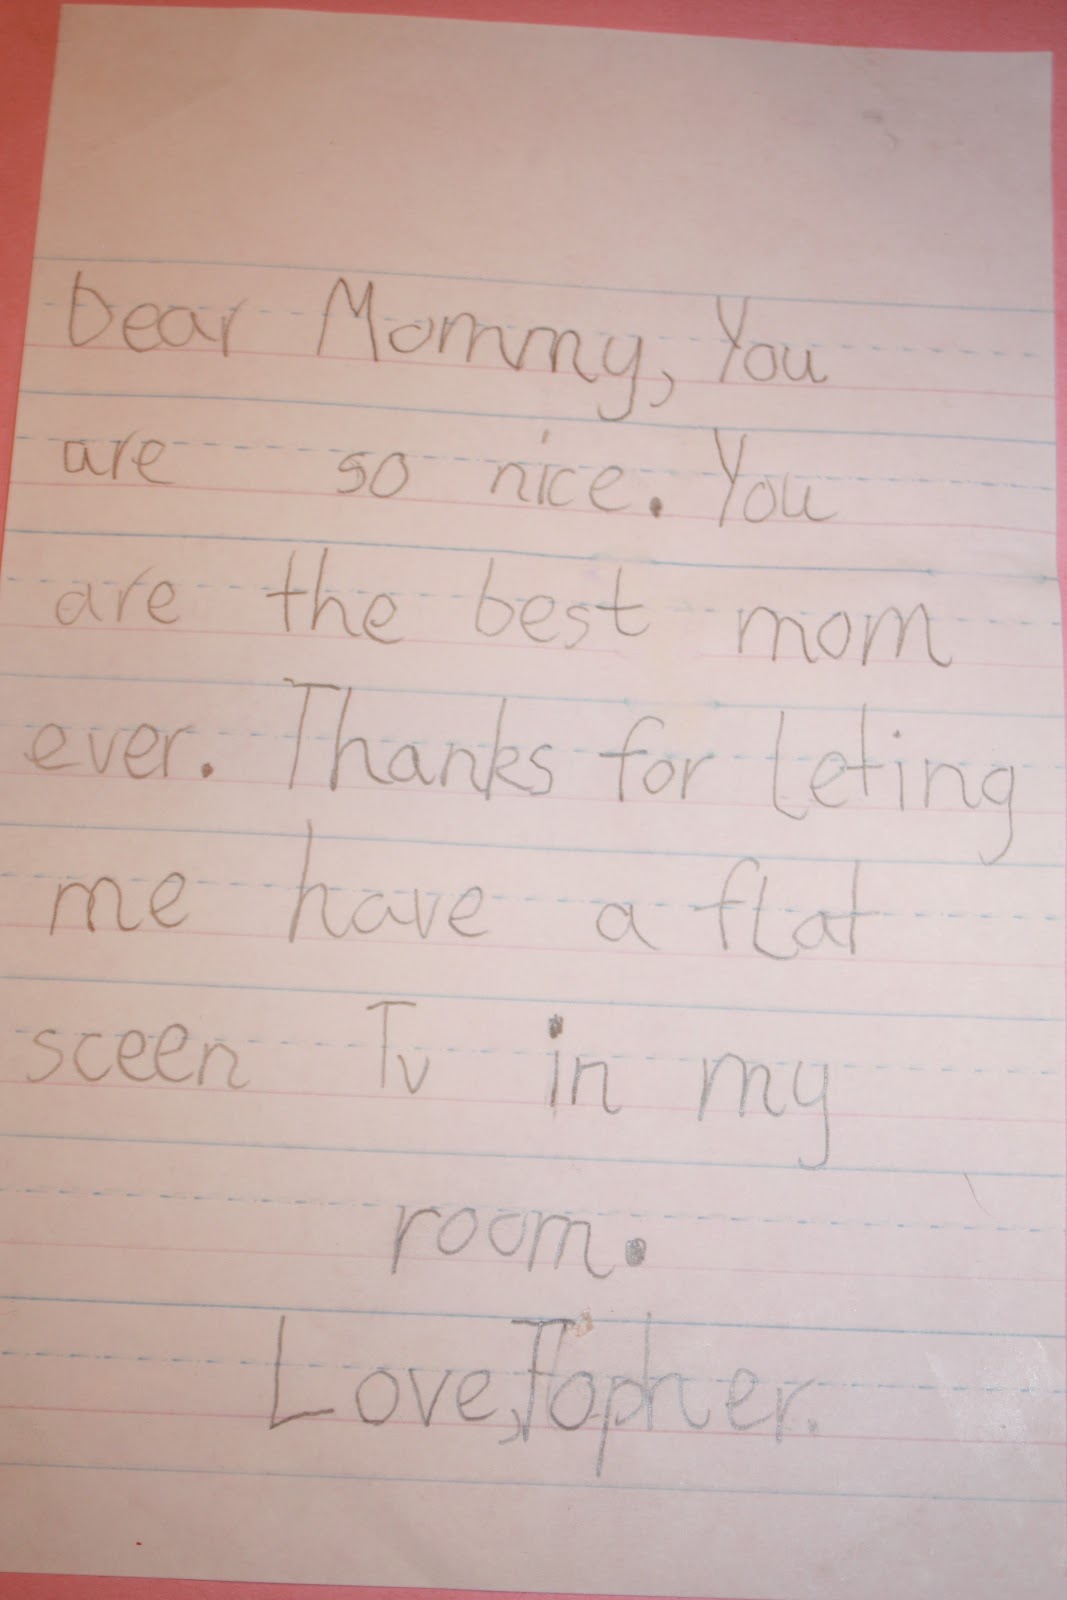 Dear Mommy, You
are so nice. You
are the best mom
ever. Thanks for leting
me have a flat
sceen Tv in my
room.
Love, Topher.